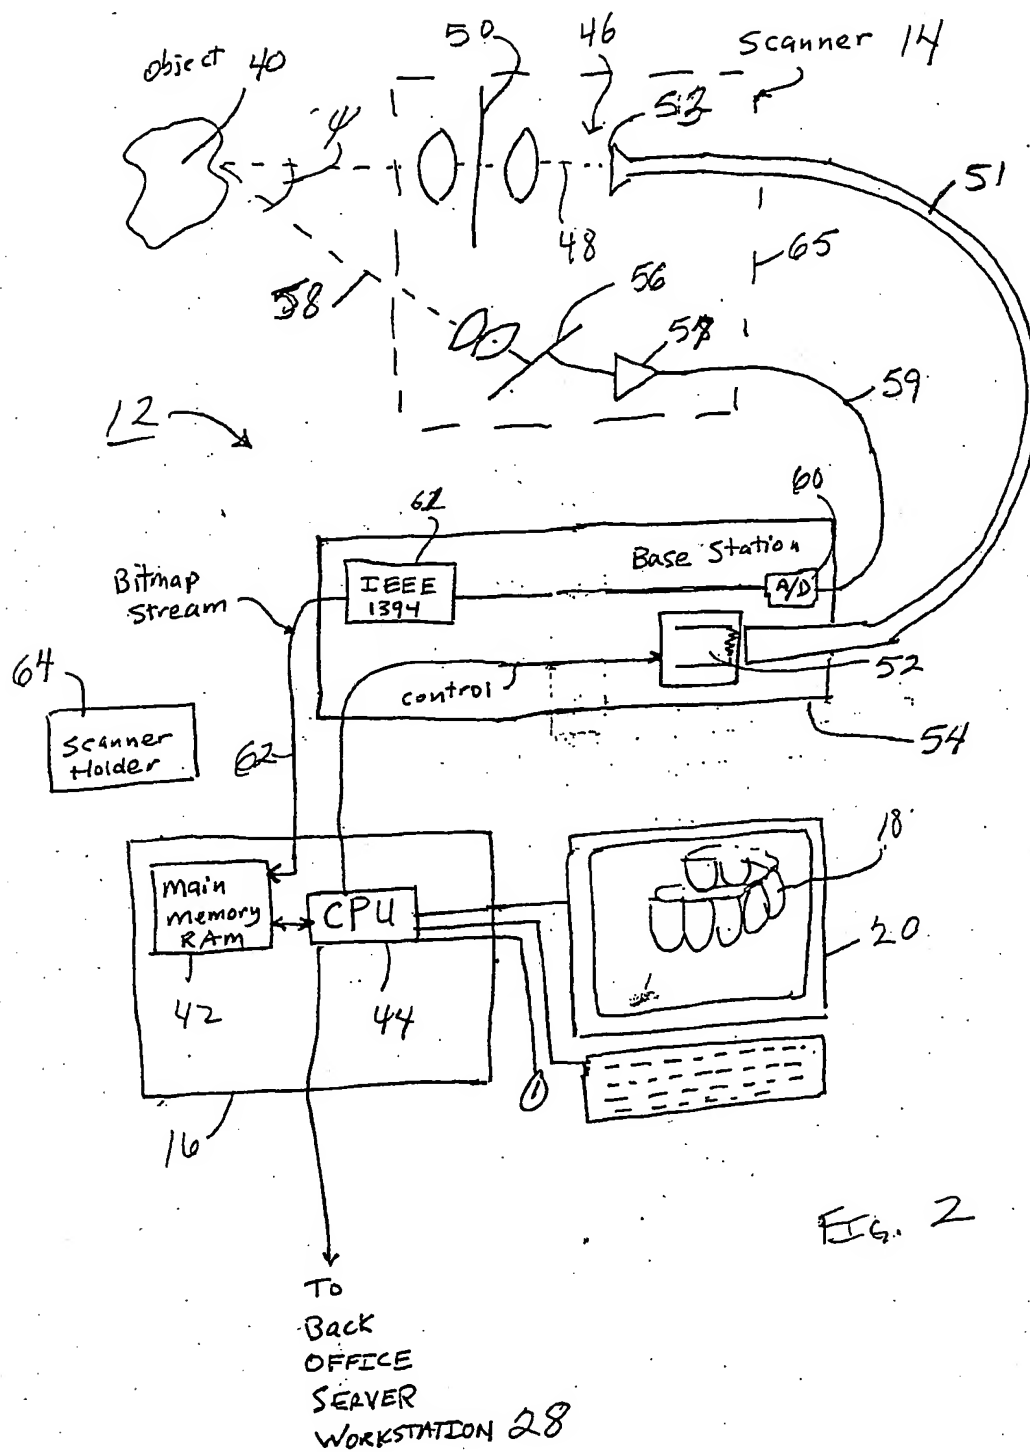 50
46
Scanner 14
Object 40
53
51
48
65
58
56
57
59
12
60
61
Base Station
Bitmap
Stream
IEEE
1394
A/D
64
control
52
Scanner
Holder
62
54
18
main
memory
RAM
CPU
20
42
44
16
FIG. 2
To
Back
OFFICE
SERVER
WORKSTATION 28